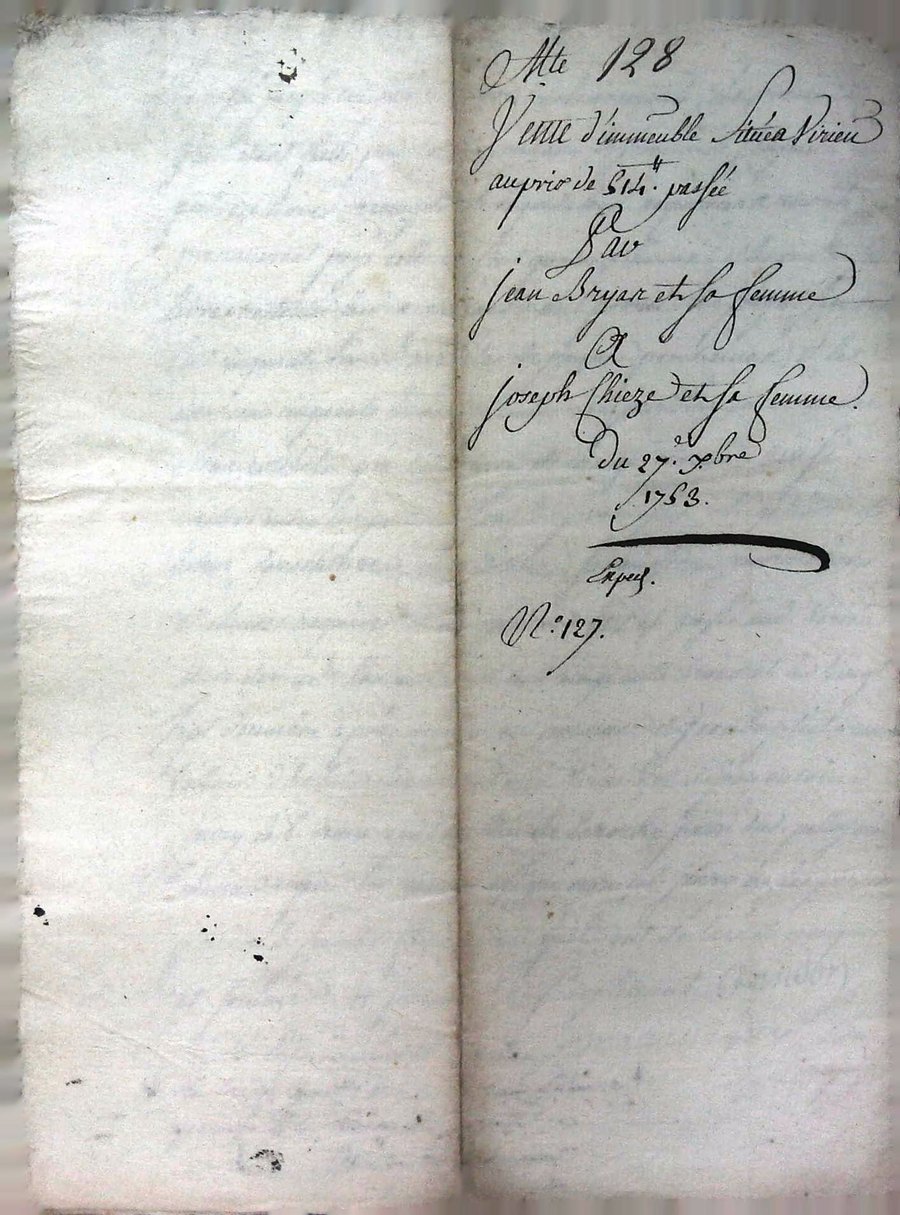 Cotte 128
Vente d'immeuble Situéa Virieu
auprix de 514.ᵗᵗ passée
Par
jean Bryan et Sa femme
A
joseph Chieze et Sa femme.
Du 27.ᵉ xbre
1753.
Exped.
N.º 127.